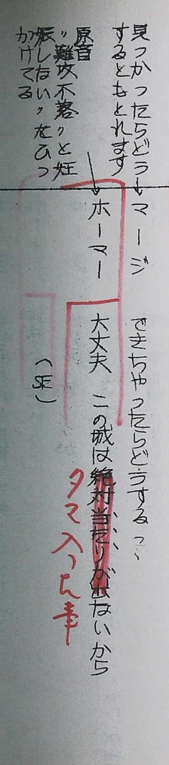 見つかったらどう
するともとれます
マージ できちゃったらどうする…
原音
"難攻不落"と妊
娠しない"をひっ
かけてる
ホーマー 大丈夫 この城は絶対当たりが出ないから
タマ入
(SE)